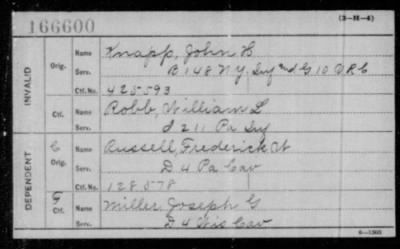 166600
(3-H-4)
INVALID
Orig.
Name Knapp, John H
Serv. B 148 N.Y. Inf and G 10 V.R.C
Ctf. No. 425593
Ctf.
Name Robb, William L
Serv. I 211 Pa Inf
DEPENDENT
C
Orig.
Name Russell, Frederick W
Serv. D 4 Pa Cav
Ctf. No. 128578
F
Ctf.
Name Miller, Joseph G
Serv. D 4 Wis Cav